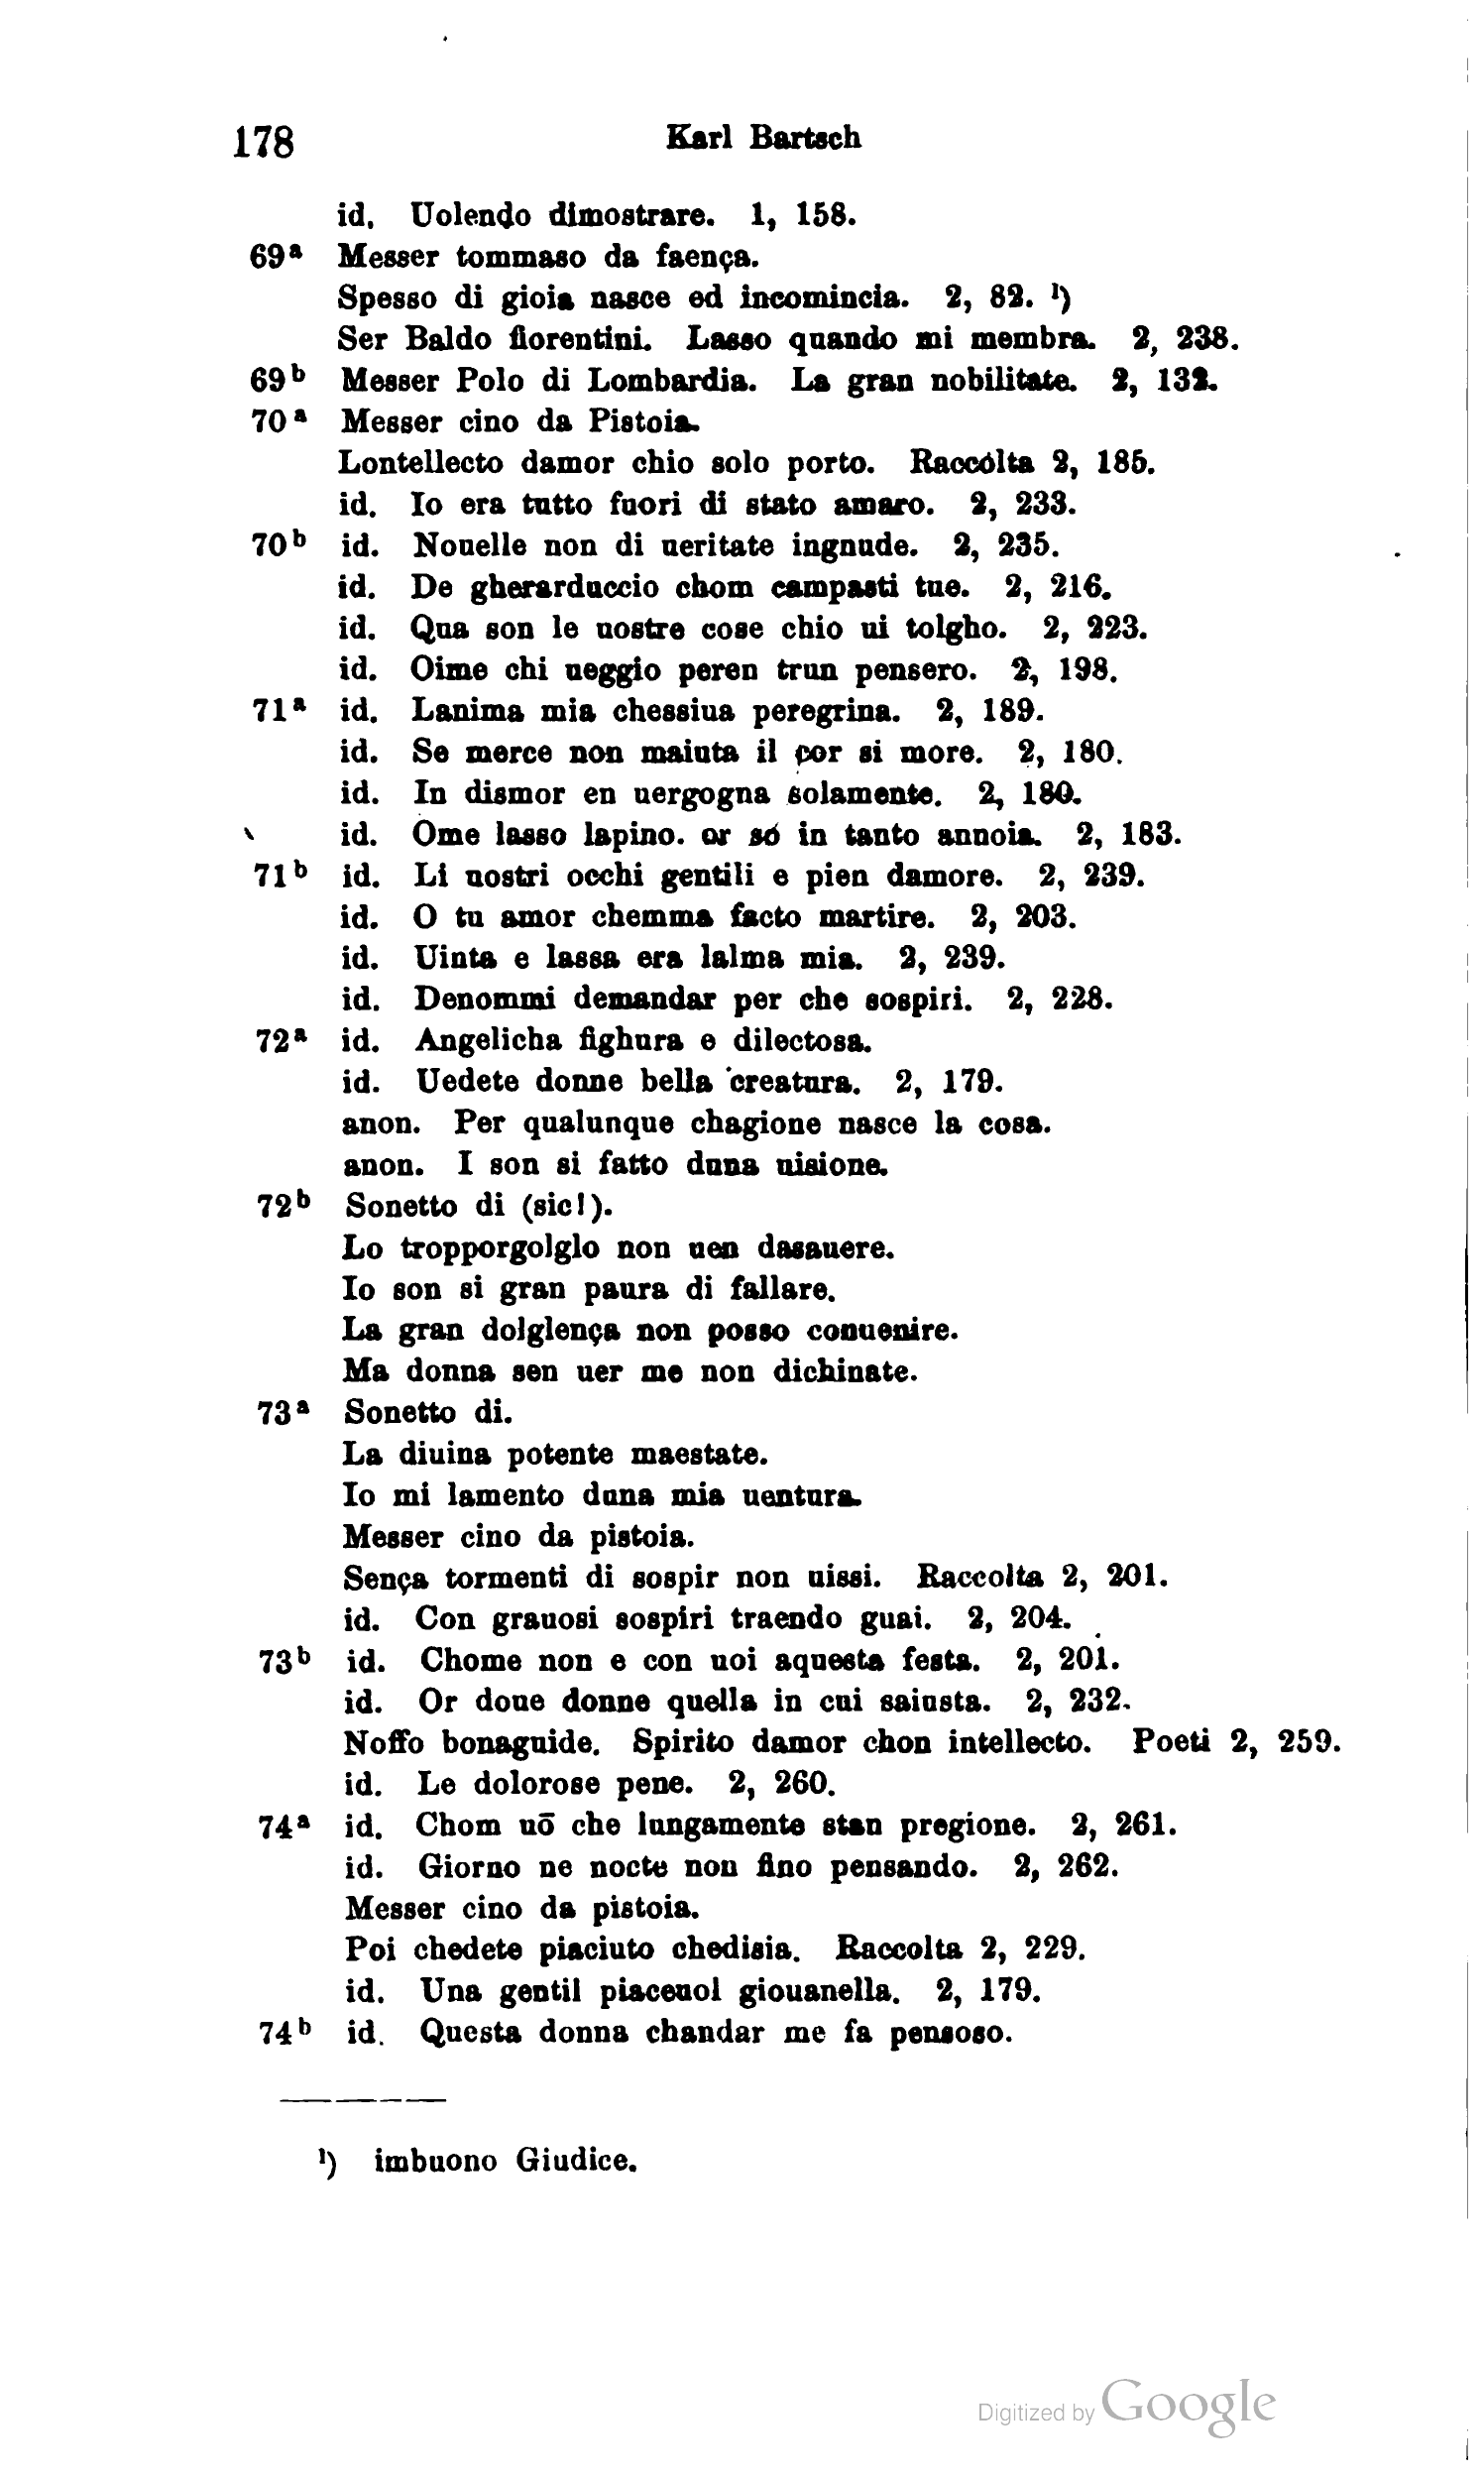 178 Karl Bartsch
id. Uolendo dimostrare. 1, 158.
69ᵃ Messer tommaso da faença.
Spesso di gioia nasce ed incomincia. 2, 82. ¹)
Ser Baldo fiorentini. Lasso quando mi membra. 2, 238.
69ᵇ Messer Polo di Lombardia. La gran nobilitate. 2, 132.
70ᵃ Messer cino da Pistoia.
Lontellecto damor chio solo porto. Raccolta 2, 185.
id. Io era tutto fuori di stato amaro. 2, 233.
70ᵇ id. Nouelle non di ueritate ingnude. 2, 235.
id. De gherarduccio chom campasti tue. 2, 216.
id. Qua son le uostre cose chio ui tolgho. 2, 223.
id. Oime chi ueggio peren trun pensero. 2, 198.
71ᵃ id. Lanima mia chessiua peregrina. 2, 189.
id. Se merce non maiuta il cor si more. 2, 180.
id. In dismor en uergogna solamente. 2, 180.
id. Ome lasso lapino. or só in tanto annoia. 2, 183.
71ᵇ id. Li uostri occhi gentili e pien damore. 2, 239.
id. O tu amor chemma facto martire. 2, 203.
id. Uinta e lassa era lalma mia. 2, 239.
id. Denommi demandar per che sospiri. 2, 228.
72ᵃ id. Angelicha fighura e dilectosa.
id. Uedete donne bella creatura. 2, 179.
anon. Per qualunque chagione nasce la cosa.
anon. I son si fatto duna uisione.
72ᵇ Sonetto di (sic!).
Lo tropporgolglo non uen dasauere.
Io son si gran paura di fallare.
La gran dolglença non posso conuenire.
Ma donna sen uer me non dichinate.
73ᵃ Sonetto di.
La diuina potente maestate.
Io mi lamento duna mia uentura.
Messer cino da pistoia.
Sença tormenti di sospir non uissi. Raccolta 2, 201.
id. Con grauosi sospiri traendo guai. 2, 204.
73ᵇ id. Chome non e con uoi aquesta festa. 2, 201.
id. Or doue donne quella in cui saiusta. 2, 232.
Noffo bonaguide. Spirito damor chon intellecto. Poeti 2, 259.
id. Le dolorose pene. 2, 260.
74ᵃ id. Chom uō che lungamente stan pregione. 2, 261.
id. Giorno ne nocte non fino pensando. 2, 262.
Messer cino da pistoia.
Poi chedete piaciuto chedisia. Raccolta 2, 229.
id. Una gentil piaceuol giouanella. 2, 179.
74ᵇ id. Questa donna chandar me fa pensoso.
¹) imbuono Giudice.
Digitized by Google